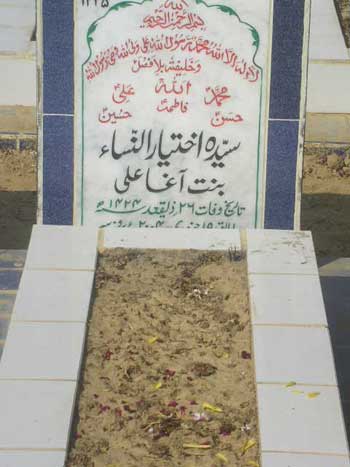 ۱۲۲۵
بسم اللہ الرحمن الرحیم
لا الہ الا اللہ محمد رسول اللہ علی ولی اللہ وصی رسول اللہ
وخلیفتہ بلا فصل
محمدؐ اللہ علیؑ
حسنؑ فاطمہؑ حسینؑ
سیدہ اختیار النساء
بنت آغا علی
تاریخ وفات ۲۶ ذیقعد ۱۴۲۴ھ